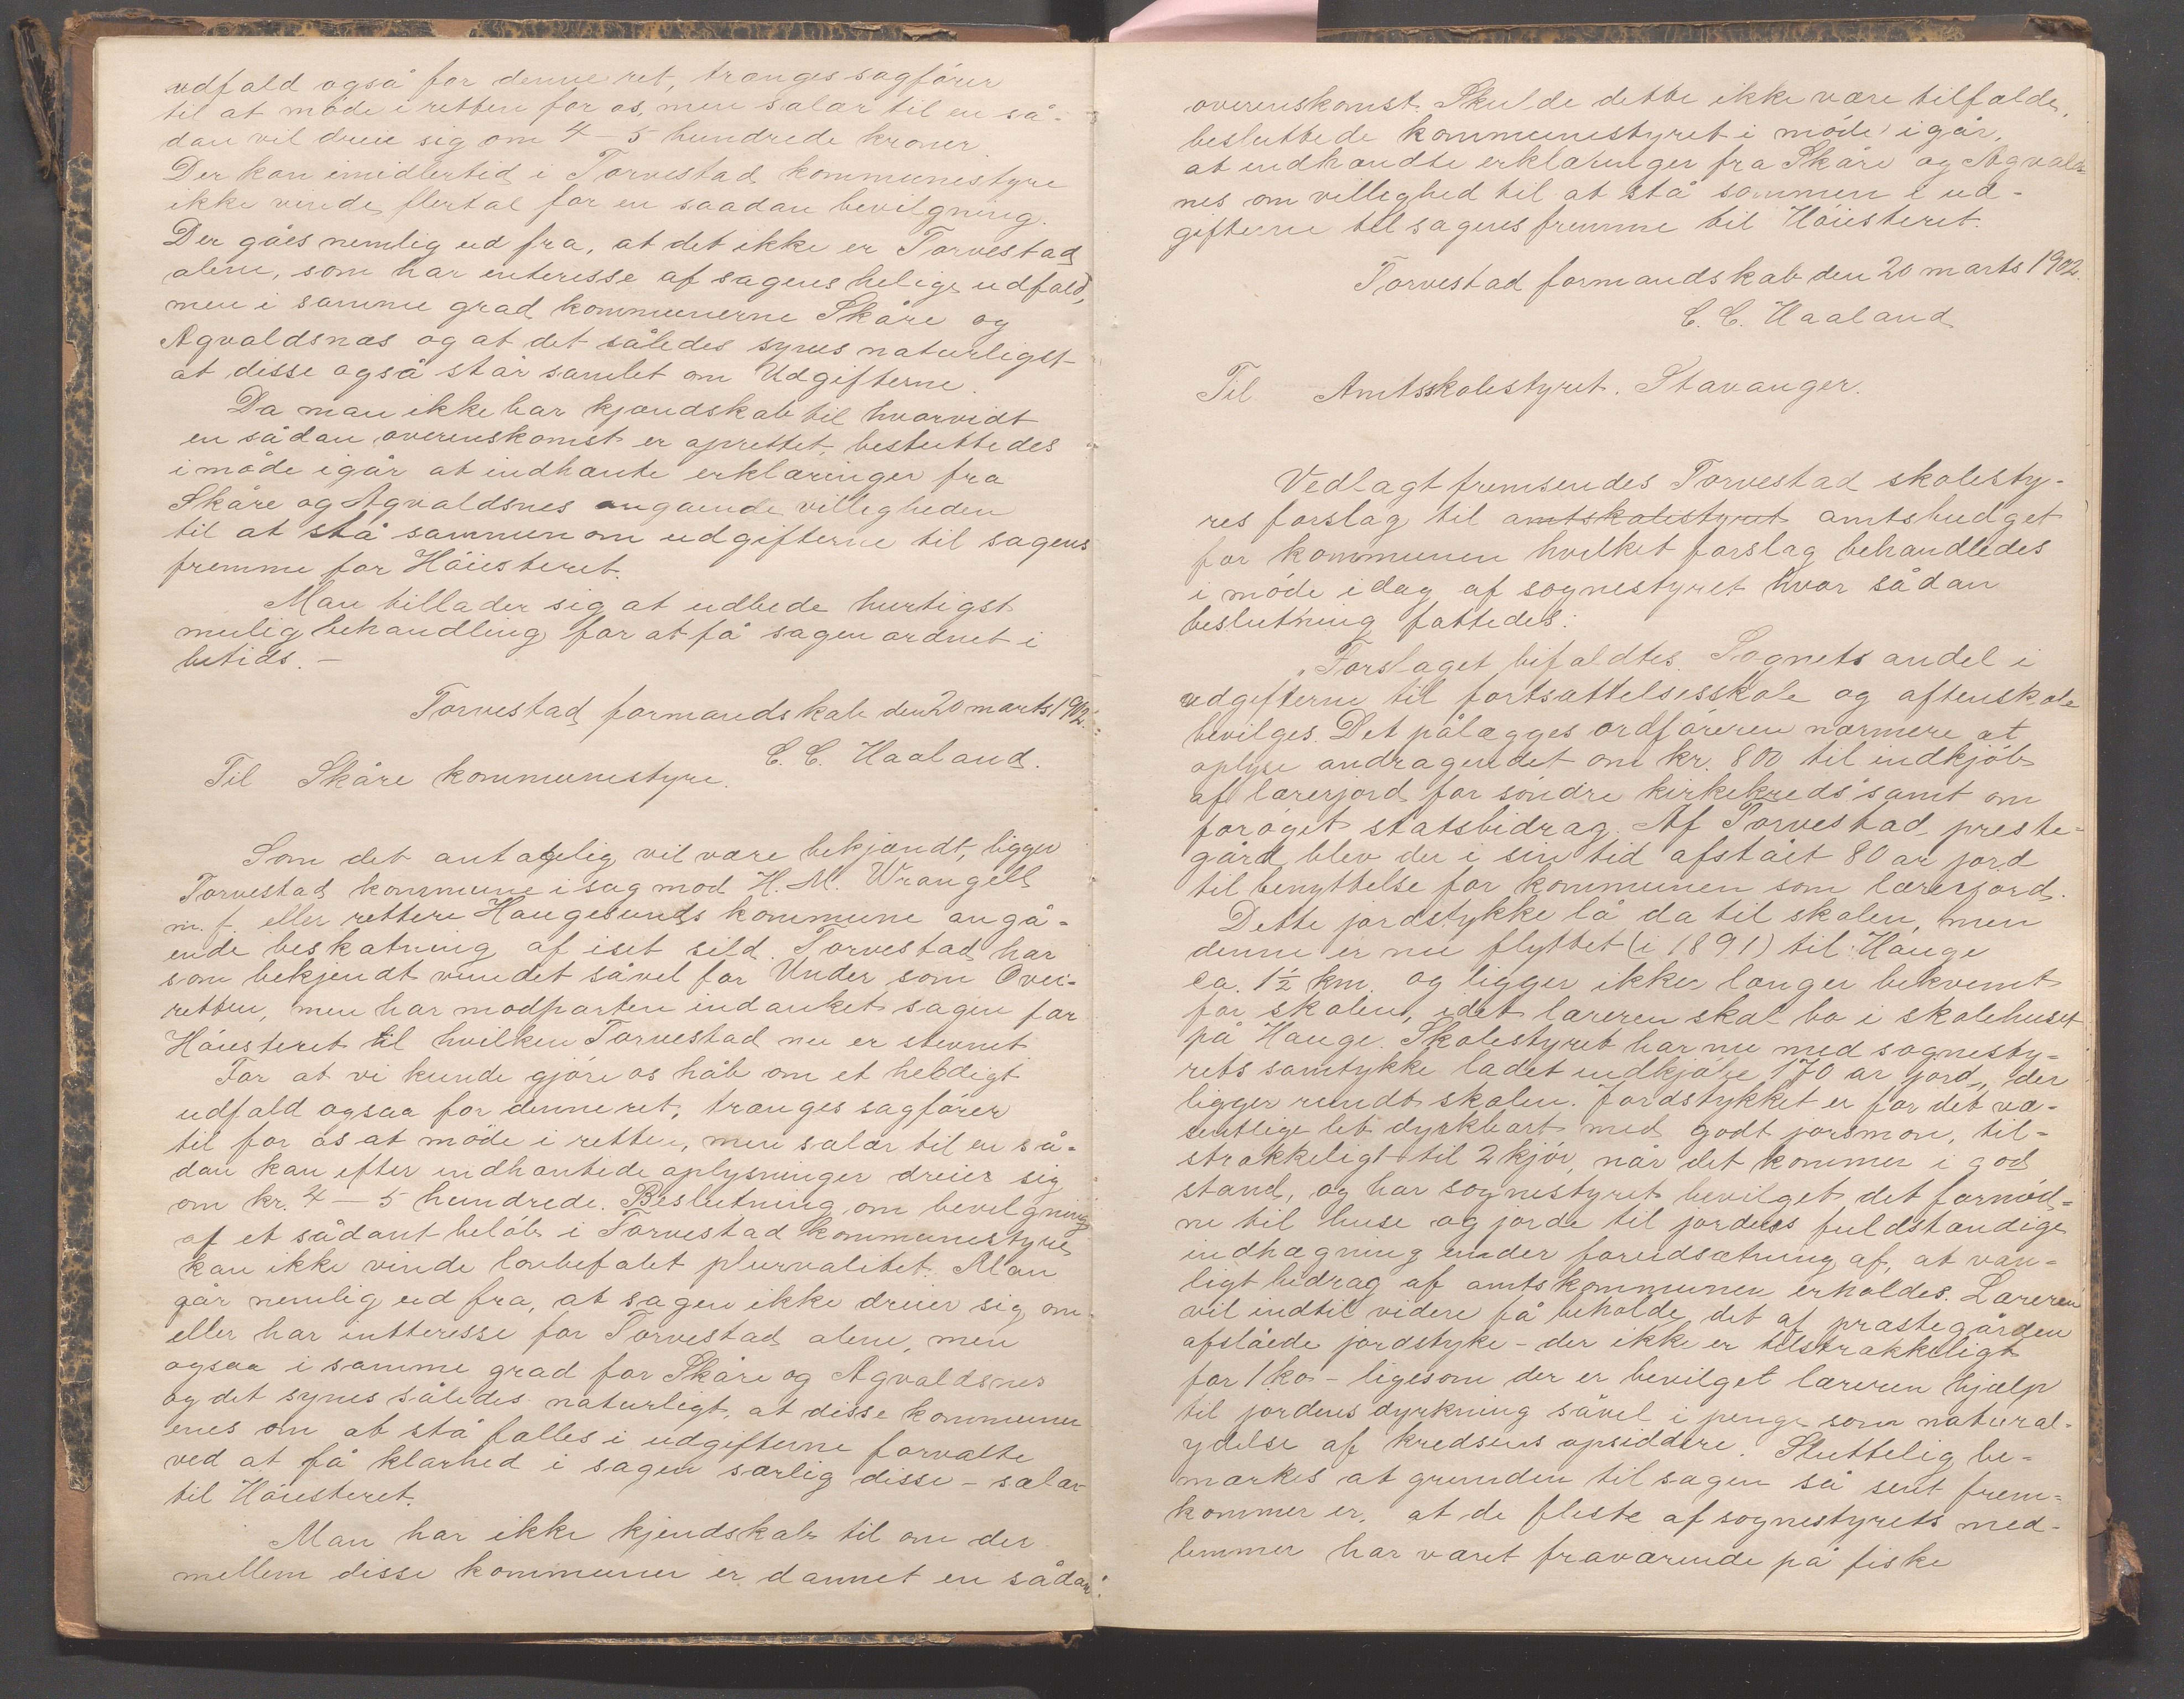 udfald også for denne ret, trænges sagfører
til at møde i retten for os, men salær til en så-
dan vil dreie sig om 4-5 hundrede kroner
Der kan imidlertid i Torvestad kommunestyre
ikke vinde flertal for en saadan bevilgning.
Der gåes nemlig ud fra, at det ikke er Torvestad
alene, som har interesse af sagens heldige udfald,
men i samme grad kommunerne Skåre og
Agvaldsnæs og at det således synes naturligst
at disse også står samlet om Udgifterne.
Da man ikke har kjændskab til hvorvidt
en sådan overenskomst er oprettet, besluttedes
i møde igår at indhænte erklæringer fra
Skåre og Agvaldsnes angaaende villigheden
til at stå sammen om udgifterne til sagens
fremme for Høiesteret.
Man tillader sig at udbede hurtigst
mulig behandling for at få sagen ordnet i
betids. –
Torvestad formandskab den 20 marts 1902.
C. C. Haaland.
Til Skåre kommunestyre.
Som det antagelig vil være bekjændt, ligger
Torvestad kommune i sag mod H. M. Wrangell
m. f. eller rettere Haugesunds kommune angå-
ende beskatning af iset sild. Torvestad har
som bekjendt vundet såvel for Under som Over-
retten, men har modparten indanket sagen for
Høiesteret til hvilken Torvestad nu er stevnet
For at vi kunde gjøre os håb om et heldigt
udfald ogsaa for denne ret, trænges sagfører
til for os at møde i retten, men salær til en så-
dan kan efter indhæntede oplysninger dreier sig
om kr. 4-5 hundrede. Beslutning om bevilgning
af et sådant beløb i Torvestad kommunestyre
kan ikke vinde lovbefalet plurvalitet. Man
går nemlig ud fra, at sagen ikke dreier sig om
eller har intteresse for Torvestad alene, men
ogsaa i samme grad for Skåre og Agvaldsnes
og det synes således naturligt, at disse kommuner
enes om at stå fælles i udgifterne forvalte
ved at få klarhed i sagen særlig disse – salær
til Høiesteret.
Man har ikke kjendskab til om der
mellem disse kommuner er dannet en sådan
overenskomst. Skulde dette ikke være tilfælde,
besluttede kommunestyret i møde igår,
at indhændte erklæringer fra Skåre og Agvalds-
nes om villighed til at stå sammen i ud-
gifterne til sagens fremme til Høiesteret.
Torvestad formandskab den 20 marts 1902.
C. C. Haaland
Til Amtsskolestyret. Stavanger.
Vedlagt fremsendes Torvestad skolesty-
res forslag til amtskolestyret amtsbudget
for kommunen hvilket forslag behandledes
i møde idag af sognestyret hvor sådan
beslutning fattedes:
„Forslaget bifaldtes. Sognets andel i
udgifterne til fortsættelsesskole og aftenskole
bevilges. Det pålægges ordføreren nærmere at
oplyse andragendet om kr. 800 til indkjøb
af lærerjord for søndre kirkekreds samt om
forøget statsbidrag. Af Torvestad preste-
gård blev der i sin tid afstået 80 ar jord
til benyttelse for kommunen som lærerjord.
Dette jordstykke lå da til skolen, men
denne er nu flyttet (i 1891) til Hauge
ca. 1½ km. og ligger ikke længer bekvemt
for skolen, idet læreren skal bo i skolehuset
på Hauge. Skolestyret har nu med sognesty-
rets samtykke ladet indkjøbe 170 ar jord, der
ligger rundt skolen. Jordstykket er for det væ-
sentlige let dyrkbart med godt jorsmon, til-
strækkeligt til 2 kjør, når det kommer i god
stand, og har sognestyret bevilget det fornød-
ne til huse og jorde til jordens fuldstændige
indhægning under forudsætning af, at van-
ligt bidrag af amtskommunen erholdes. Læreren
vil indtil videre få beholde det af præstegården
afståede jordstyke – der ikke er tilstrækkeligt
for 1 ko – ligesom der er bevilget læreren hjælp
til jordens dyrkning såvel i penge som natural-
ydelse af kredsens opsiddere. Sluttelig be-
mærkes at grunden til sagen så sent frem-
kommer er, at de fleste af sognestyrets med-
lemmer har været fraværende på fiske